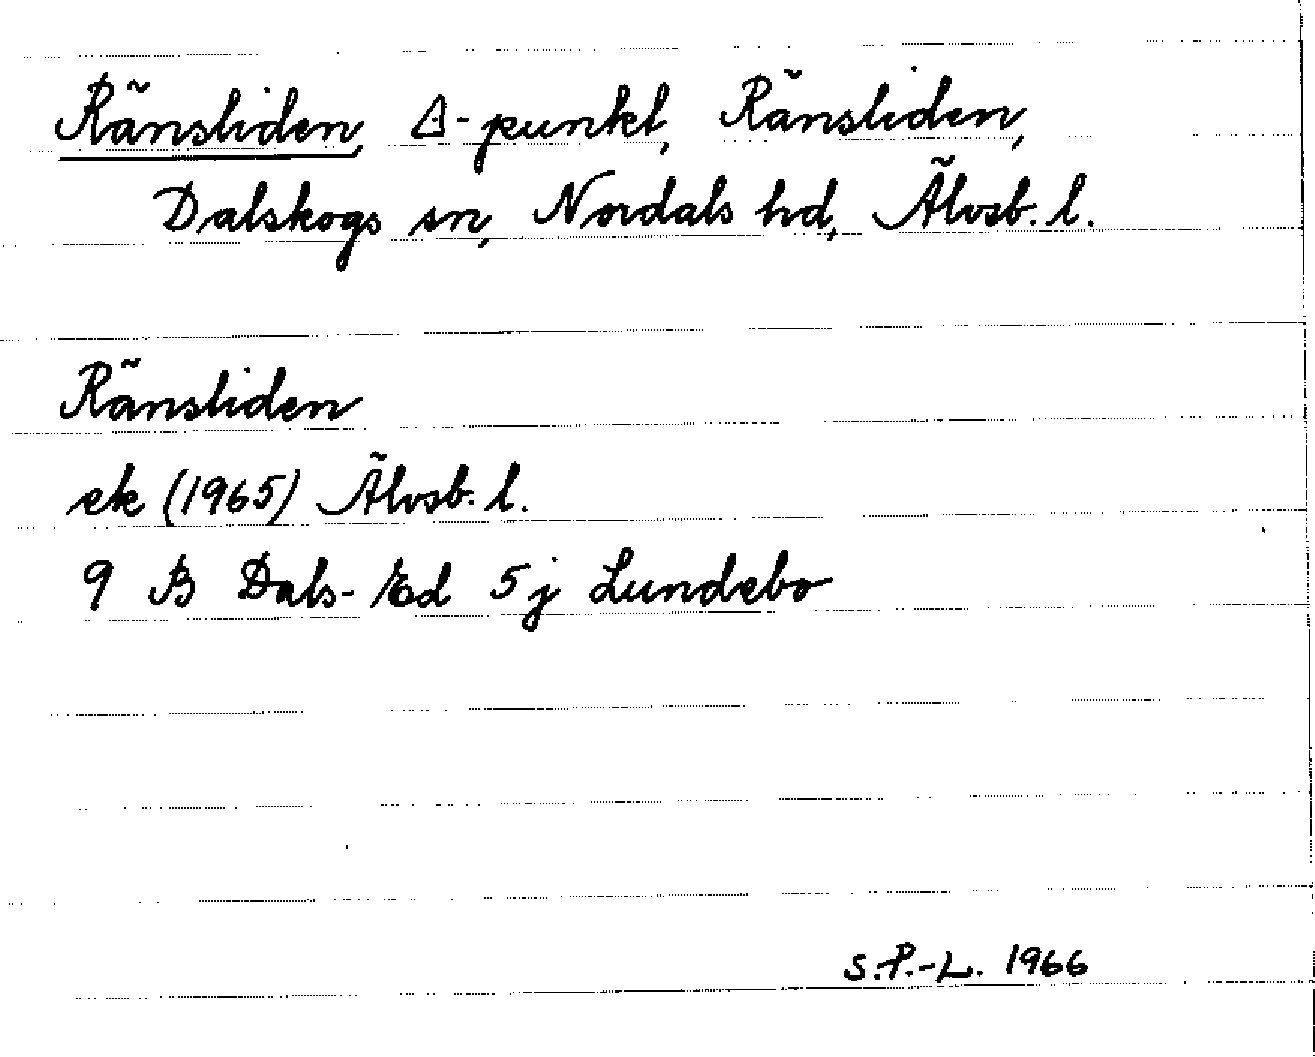 Ränsliden, △-punkt, Ränsliden,
Dalskogs sn, Nordals hd, Älvsb. l.
Ränsliden
ek (1965) Älvsb. l.
9 B Dals-Ed 5j Lundebo
S.P.-L. 1966